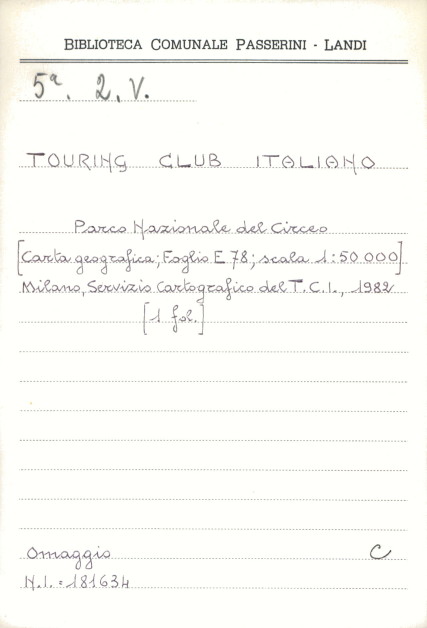 BIBLIOTECA COMUNALE PASSERINI - LANDI
5ª. 2. V.
TOURING CLUB ITALIANO
Parco Nazionale del Circeo
[Carta geografica; Foglio E 78; scala 1:50 000]
Milano, Servizio Cartografico del T.C.I., 1982
[1 fol.]
Omaggio C
N.I. = 181634